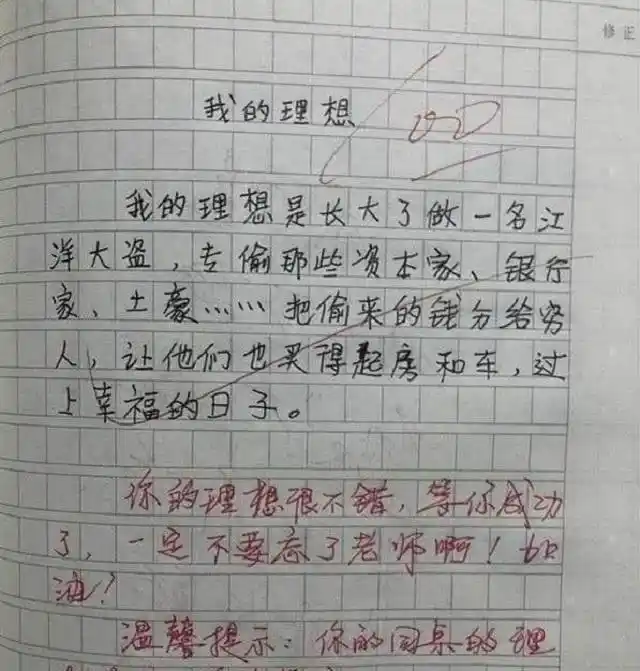 修正
我的理想
我的理想是长大了做一名江
洋大盗，专偷那些资本家、银行
家、土豪……把偷来的钱分给穷
人，让他们也买得起房和车，过
上幸福的日子。
你的理想很不错，等你成功
了，一定不要忘了老师啊！加
油！
温馨提示：你的同桌的理